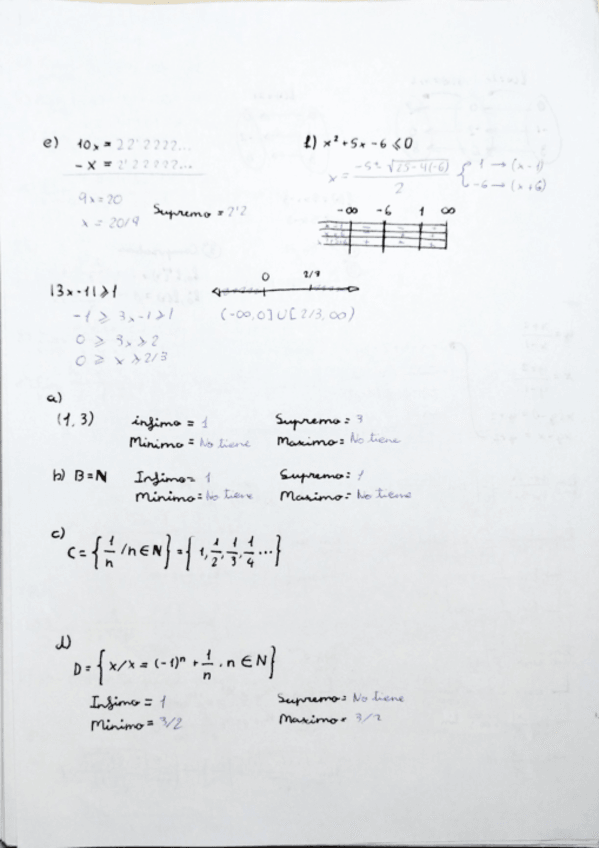 e) 10x = 22'2222...
- x = 2'22222...
9x = 20
x = 20/9
Supremo = 2'2
f) x² + 5x - 6 ≤ 0
x = (-5 ± √(25-4(-6))) / 2 { 1 → (x-1)
-6 → (x+6)
-∞ -6 1 ∞
|3x-1| ≥ 1
-1 ≥ 3x-1 ≥ 1
0 ≥ 3x ≥ 2
0 ≥ x ≥ 2/3
0
(-∞,0] U [2/3,∞)
a)
(1, 3) infimo = 1 Supremo = 3
Minimo = No tiene Maximo = No tiene
b) B = N Infimo = 1 Supremo: 1
Minimo = No tiene Maximo = No tiene
c)
C = { 1/n / n ∈ N } = { 1, 1/2, 1/3, 1/4 ... }
d)
D = { x/x = (-1)ⁿ + 1/n . n ∈ N }
Infimo = 1 Supremo = No tiene
Minimo = 3/2 Maximo = 3/2